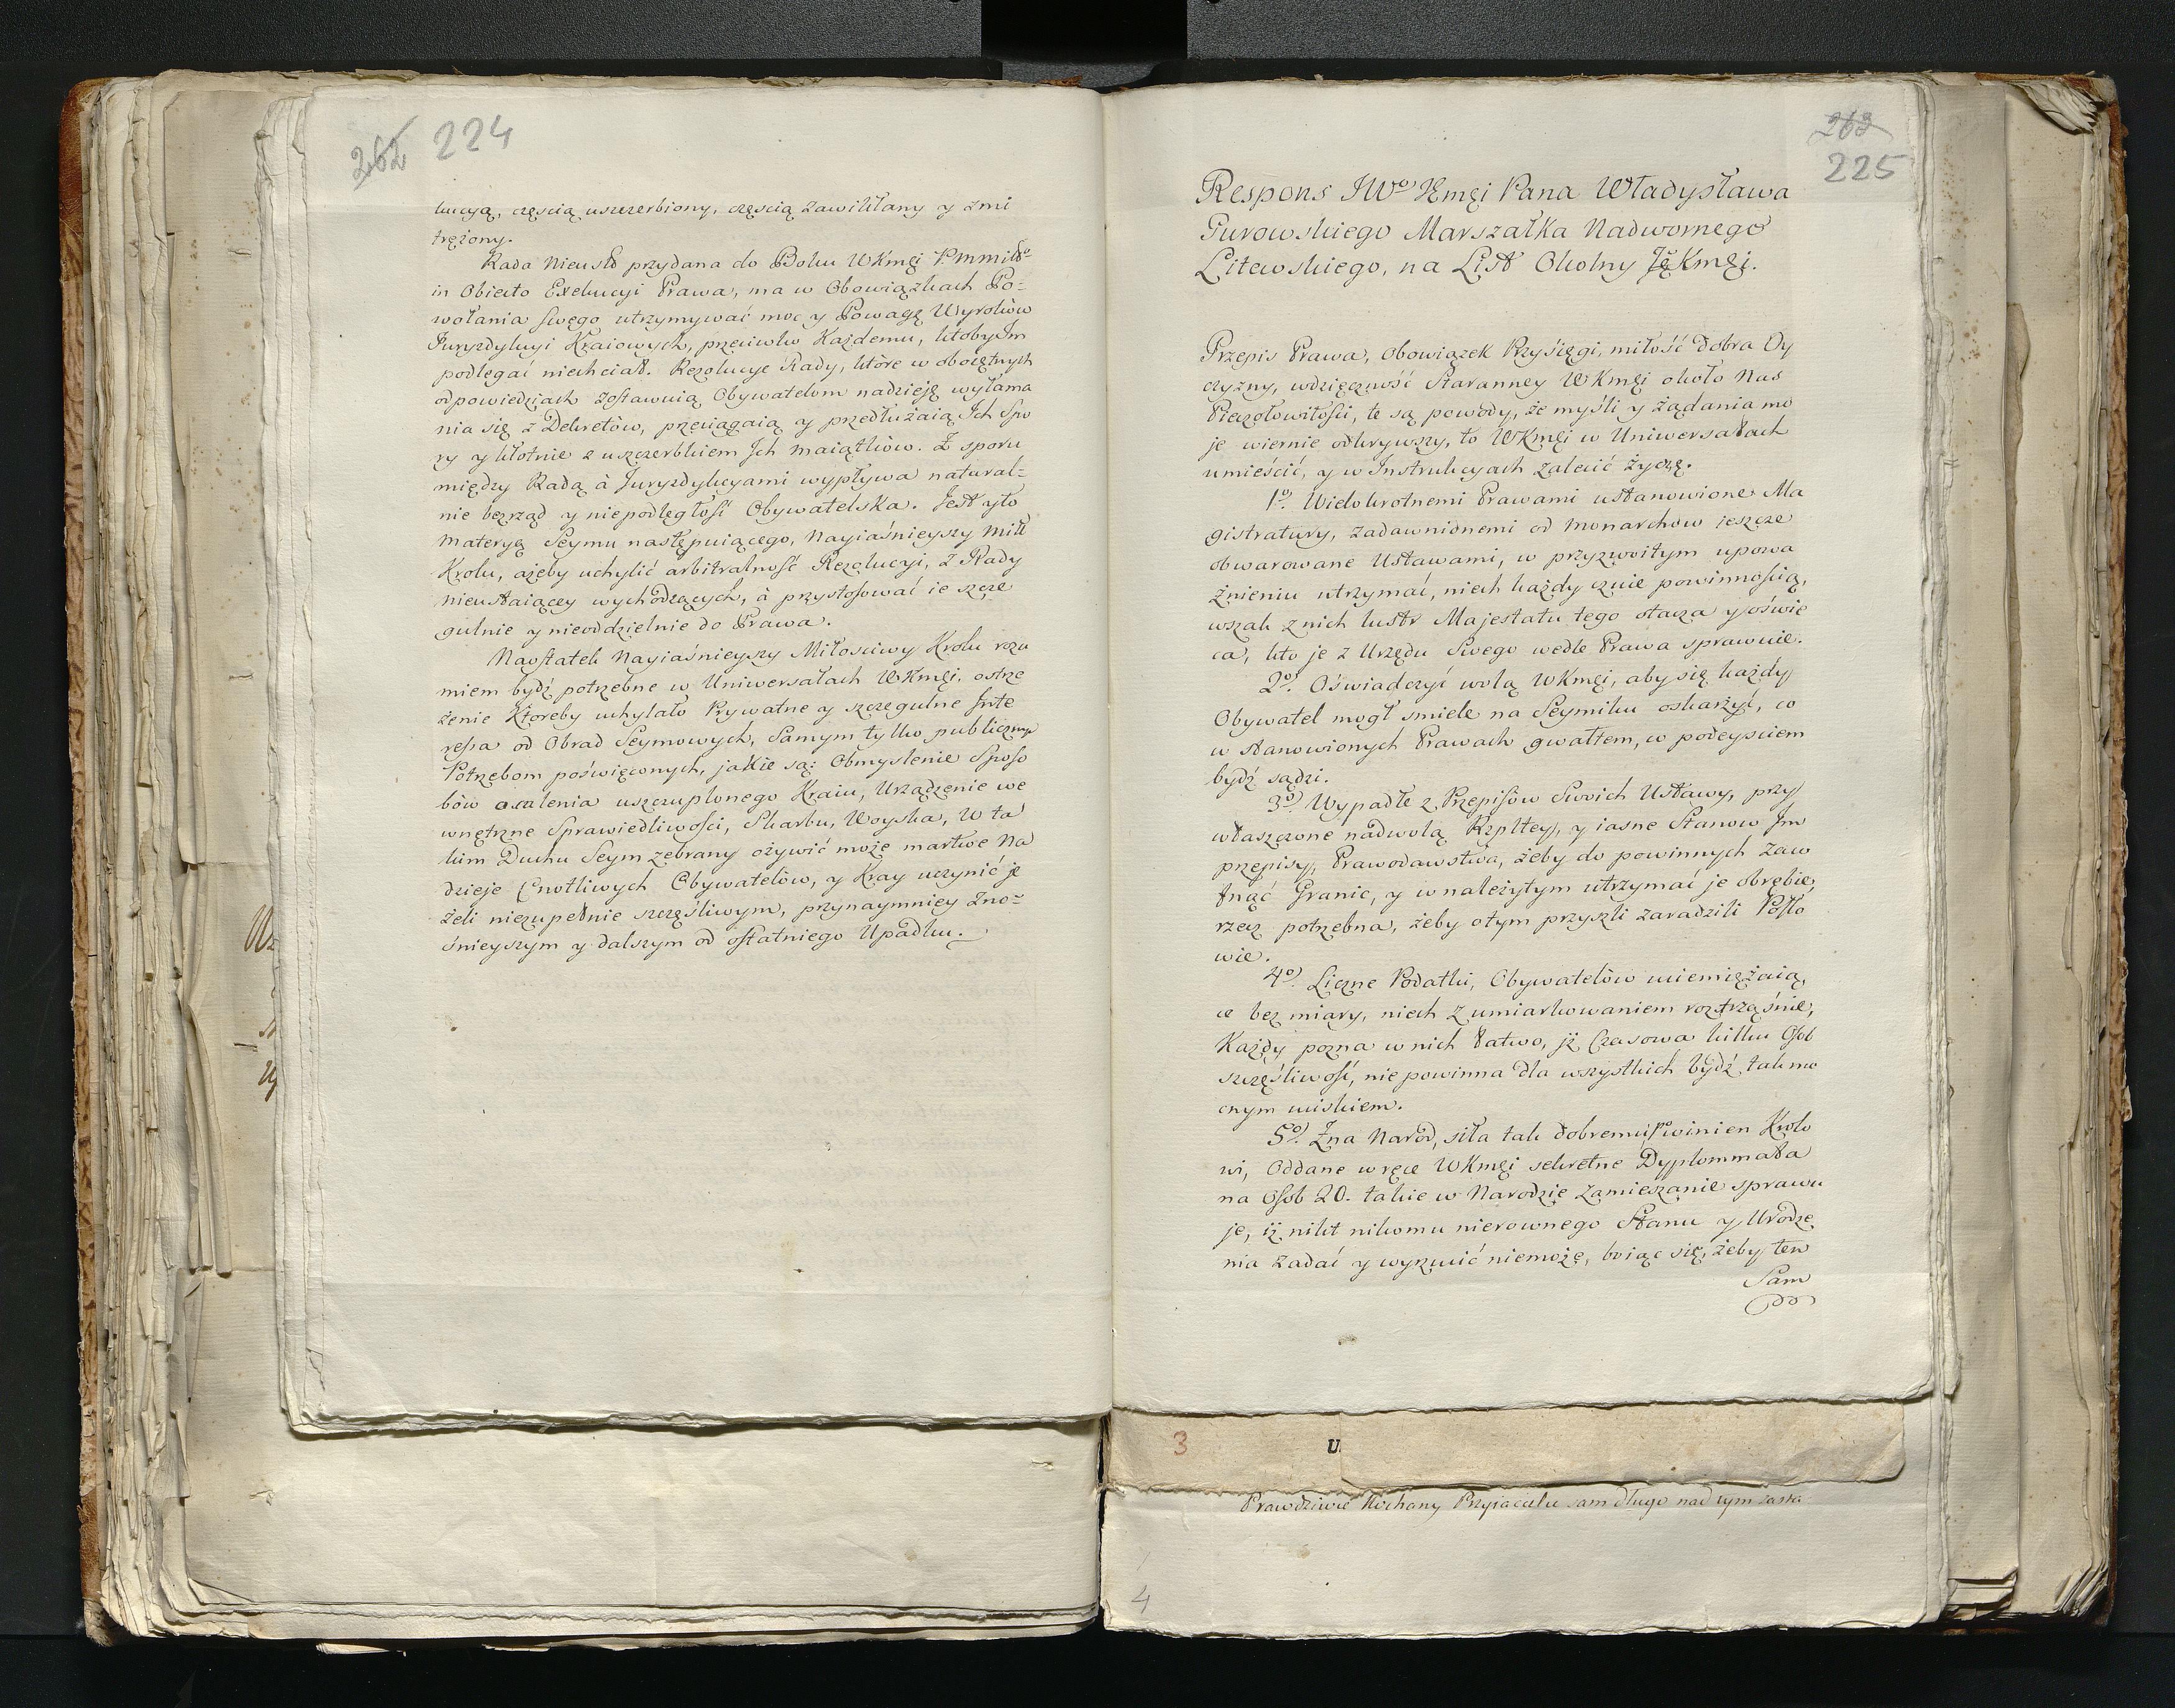 262 224
kucyą, częscią uszczerbiony, częscią zawikłany y zmi
trężony.
Rada Nieust przydana do Boku WKmći
in Obiecto Exekucyi Prawa, ma w Obowiązkach Po=
wołania swego utrzymywać moc y Powagę Wyroków
Juryzdykcyi Kraiowych, przeciwko Każdemu, ktoby Im
podlegać niechciał. Rezolucye Rady, które w obojętnych
odpowiedziach zostawuią Obywatelom nadzieję wyłama
nia się z Dekretów, przeciągaią y przedłużaią Ich Spo
ry y kłotnie z uszczerbkiem Ich maiątków. Z sporu
między Radą à Juryzdykcyami wypływa natural=
nie bezrząd y niepodległość Obywatelska. Jest yto
materyą Seymu następuiącego, Nayiaśnieyszy Miłł
Krolu, ażeby uchylić arbitralność Rezolucyi, z Rady
nieustaiącey wychodzących, à przystosować ie szcze
gulnie y nieoddzielnie do Prawa.
Naostatek Nayiaśnieyszy Miłosciwy Krolu rozu
miem bydź potrzebne w Uniwersałach WKmći. ostrze
żenie Ktoreby uchylało Prywatne y szczegulne Inte
ressa od Obrad Seymowych, Samym tylko publicznym
Potrzebom poświęconych, jakie są: Obmyslenie Sposo
bów ocalenia uszczuplonego Kraiu, Urządzenie we
wnętrzne Sprawiedliwości, Skarbu, Woyska, W ta
kim Duchu Seym zebrany ożywić może martwe Na
dzieje Cnotliwych Obywatelów, y Kray uczynić je
żeli niezupełnie szczęśliwym, przynaymniey Zno=
śnieyszym y dalszym od ostatniego Upadku.
263
225
Respons JWo Jmći Pana Władysława
Gurowskiego Marszałka Nadwornego
Litewskiego, na List Okolny JKmći.
Przepis Prawa, obowiązek Przysięgi, miłość dobra Oy
czyzny, wdzięczność Staranney WKmći około Nas
Pieczołowitości, te są powody, że myśli y żądania mo
je wiernie odkrywszy, to WKmći w Uniwersałach
umieścić, y w Instrukcyach zalecić życzę.
1o. Wielokrotnemi Prawami ustanowione Ma
gistratury, zadawnionemi od Monarchow ieszcze
obwarowane Ustawami, w przyzwoitym upowa
żnieniu utrzymać, niech każdy czuie powinnością,
wszak z nich lustr Majestatu tego otacza y oświe
ca, kto je z Urzędu Swego wedle Prawa sprawuie.
2o. Oświadczyć wolą WKmći, aby się każdy
Obywatel mogł smiele na Seymiku oskarżyć, co
w stanowionych Prawach gwałtem, co podeysciem
bydź sądzi.
3o. Wypadłe z Przepisów Swoich Ustawy, przy
właszczone nad wolą Rzpltey, y iasne Stanow Im
przepisy, Prawodawstwa, żeby do powinnych zaw
knąć Granic, y w należytym utrzymać je obrębie,
rzecz potrzebna, żeby otym przyszli zaradzili Posło
wie.
4o. Liczne Podatki, Obywatelów uciemiężaią
ce bez miary, niech z umiarkowaniem roztrząśnie,
Każdy pozna w nich łatwo, iż Czasowa kilku Osob
szczęśliwość, nie powinna dla wszystkich bydź tak mo
cnym uciskiem.
5o. Zna Narod, siła tak dobremu powinien Krolo
wi, Oddane w ręce WKmći sekretne Dyplommata
na Osob 20. takie w Narodzie zamieszanie sprawu
je, iż nikt nikomu nierownego Stanu y Urodze
nia zadać y wyrzucić niemoże, boiąc się, żeby ten
Sam
3
U
Prawdziwie Kochany Przyiacielu sam długo nad tym
4